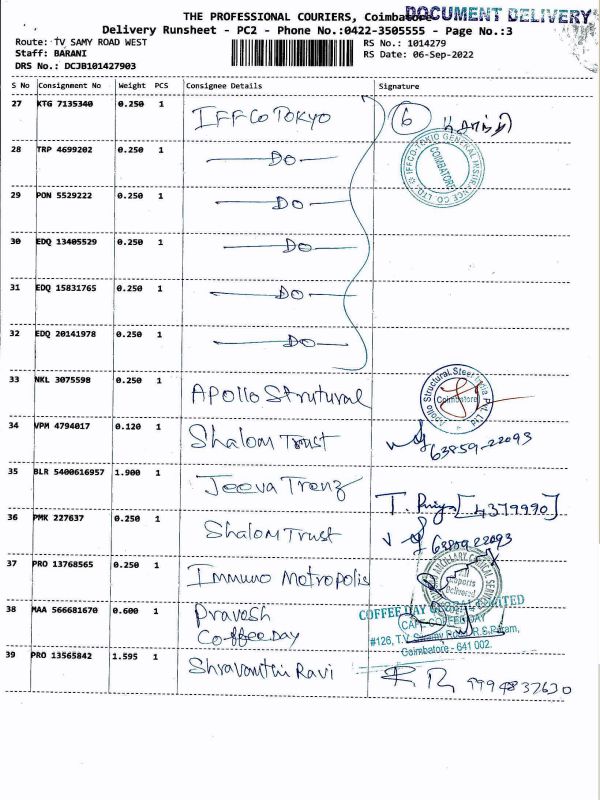 THE PROFESSIONAL COURIERS, Coimbatore
DOCUMENT DELIVERY
Delivery Runsheet - PC2 - Phone No.:0422-3505555 - Page No.:3
Route: TV SAMY ROAD WEST
RS No.: 1014279
Staff: BARANI
RS Date: 06-Sep-2022
DRS No.: DCJB101427903
S No Consignment No Weight PCS Consignee Details Signature
27 KTG 7135340 0.250 1 IFFCO TOKYO 6
28 TRP 4699202 0.250 1 DO
IFFCO-TOKIO GENERAL INSURANCE CO. LTD.
COIMBATORE
29 PON 5529222 0.250 1 DO
30 EDQ 13405529 0.250 1 DO
31 EDQ 15831765 0.250 1 DO
32 EDQ 20141978 0.250 1 DO
33 NKL 3075598 0.250 1 Apollo Strutural
Apollo Structural Steel India Pvt Ltd
Coimbatore
34 VPM 4794017 0.120 1 Shalom Trust 63859-22093
35 BLR 5400616957 1.900 1 Jeeva Trenz T. Priya [4379990]
36 PMK 227637 0.250 1 Shalom Trust 63859 22093
37 PRO 13768565 0.250 1 Immuno Metropolis
38 MAA 566681670 0.600 1 Pravosh
Coffee Day
COFFEE DAY GLOBAL LIMITED
CAFE COFFEE DAY
#126, T.V. Swamy Road, R.S.Puram,
Coimbatore - 641 002.
39 PRO 13565842 1.595 1 Shravanthi Ravi 9994837630